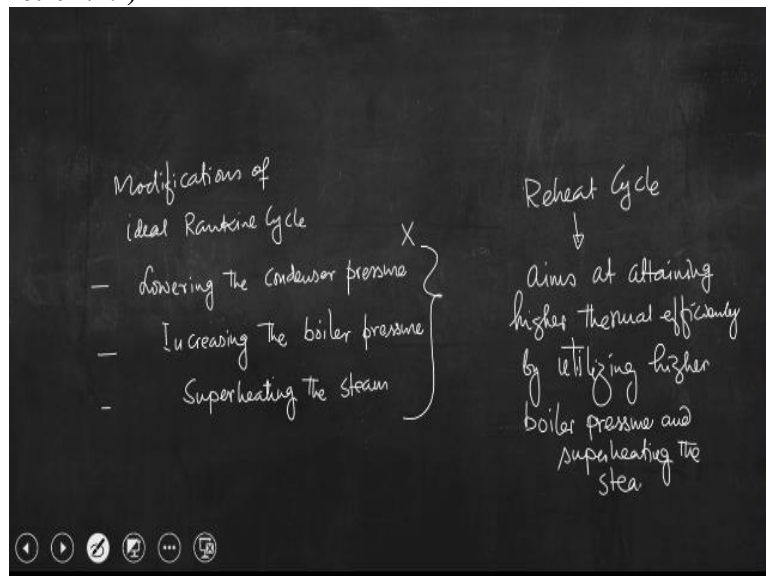 Modifications of
ideal Rankine Cycle
X
- Lowering the condenser pressure
- Increasing the boiler pressure
- Superheating the steam
Reheat Cycle
↓
aims at attaining
higher thermal efficiently
by utilizing higher
boiler pressure and
superheating the
stea